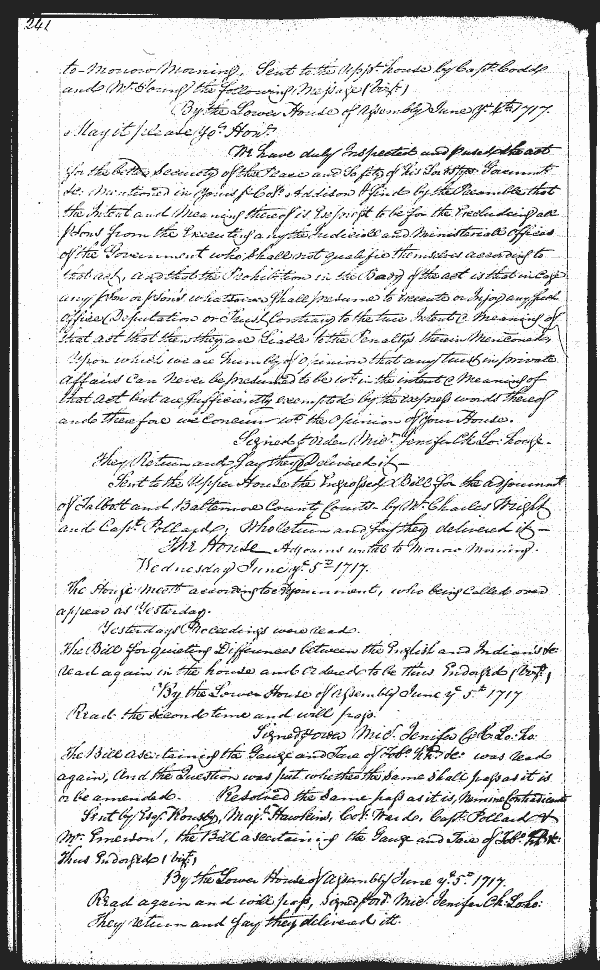 241
to-morrow Morning. Sent to the Uppr. house by Capt. Codd
and Mr. Young the following Message (Vizt.)
By the Lower House of Assembly June ye. 4th. 1717.
May it please Yor. Honrs.
We have duly Inspected and the act
for the better Security of the Peace and Safety of his Lordsps. Governmt.
&c. Mentioned in yours Col. Addison & find by the Preamble that
the Intent and Meaning thereof is Exprest to be for the Excluding all
psons from the Executing any the Judiciall and Ministeriall Offices
of the Government who shall not qualifie themselves according to
that act, and that the Prohibition in the Body of the act is that in Case
any pson or psons whatsoever shall presume to Execute or Injoy any such
Office Deputation or Trust Contrary to the true Intent & Meaning of
that act that then they are Liable to the Penaltys therein Mentioned
Upon which we are humbly of Opinion that any trust in private
affairs can never be presumed to be wt. in the intent & Meaning of
that Act but are sufficiently exempted by the express words thereof
and therefore we Concurr wt. the Opinion of Your House.
Signed p Order Mic. Jenifer Ck Lo: house.
They Return and say they Delivered it
Sent to the Upper House the Engrossed Bill for the adjournmt
of Talbott and Baltemore County Courts by Mr. Charles Wright
and Capt. Pollard; Who Return and say they delivered it
The House Adjourns untill to Morrow Morning.
Wednesday June ye. 5th. 1717.
The House Meett according to Adjournment, who being Called over
appear as Yesterday.
Yesterdays Proceedings were read.
The Bill for quieting Differences between the English and Indians &c
read again in the house and Ordered to be thus Endorsed (Vizt.)
By the Lower House of Assembly June ye. 5th. 1717
Read the second time and will pass.
Signed p Order Mic. Jenifer Ck Lo: ho:
The Bill ascertaining the Gauge and Tare of Tobo. hhds. &c was read
again, And the Question was put whether the same shall pass as it is
or be amended. Resolved the same pass as it is, Nemine Contradicente
Sent by Esqr. Rousby, Majr. Hawkins, Col. Ward, Capt. Pollard &
Mr. Emerson, the Bill ascertaining the Gauge and Tare of Tobo. &c
Thus Endorsed (Vizt.)
By the Lower House of Assembly June ye. 5th. 1717.
Read again and will pass, Signed p Ordr. Mic. Jenifer Ck. Lo ho:
They return and say they delivered it.